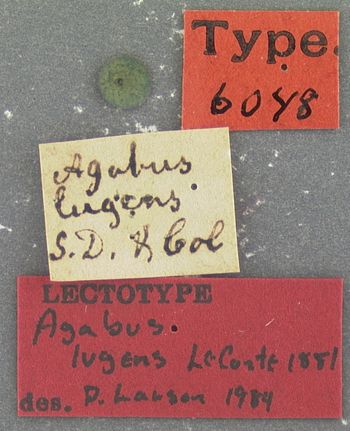 Type.
6048
Agabus
lugens.
S.D. & Col
LECTOTYPE
Agabus.
lugens LeConte 1881
des. D. Larson 1984